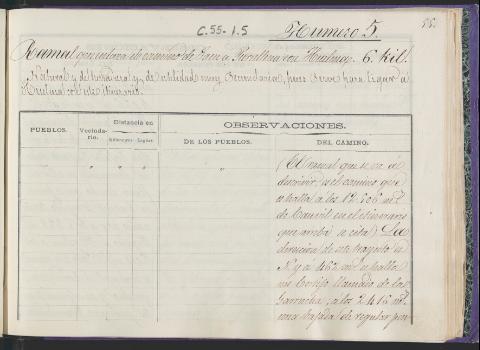 C.55-1.5
Numero 5.
Ramal que enlaza el camino de con Huelma. 6. Kil.
Natural y de herradura y de utilidad muy secundaria, pues sirve para ligar a
Huelma con este itinerario.
PUEBLOS.
Vecinda-
rio.
Distancia en
Kilómetros Leguas
OBSERVACIONES.
DE LOS PUEBLOS.
DEL CAMINO.
" " "
El ramal que se va á
describir, es el camino que
se halla á los 12.506 m.
de en el itinerario
que arriba se cita. La
dirección de este trayecto es
N. y á 462 m. se halla
un Cortijo llamado de la
Garrucha, á los 2.416 m.
una bajada de regular pen-